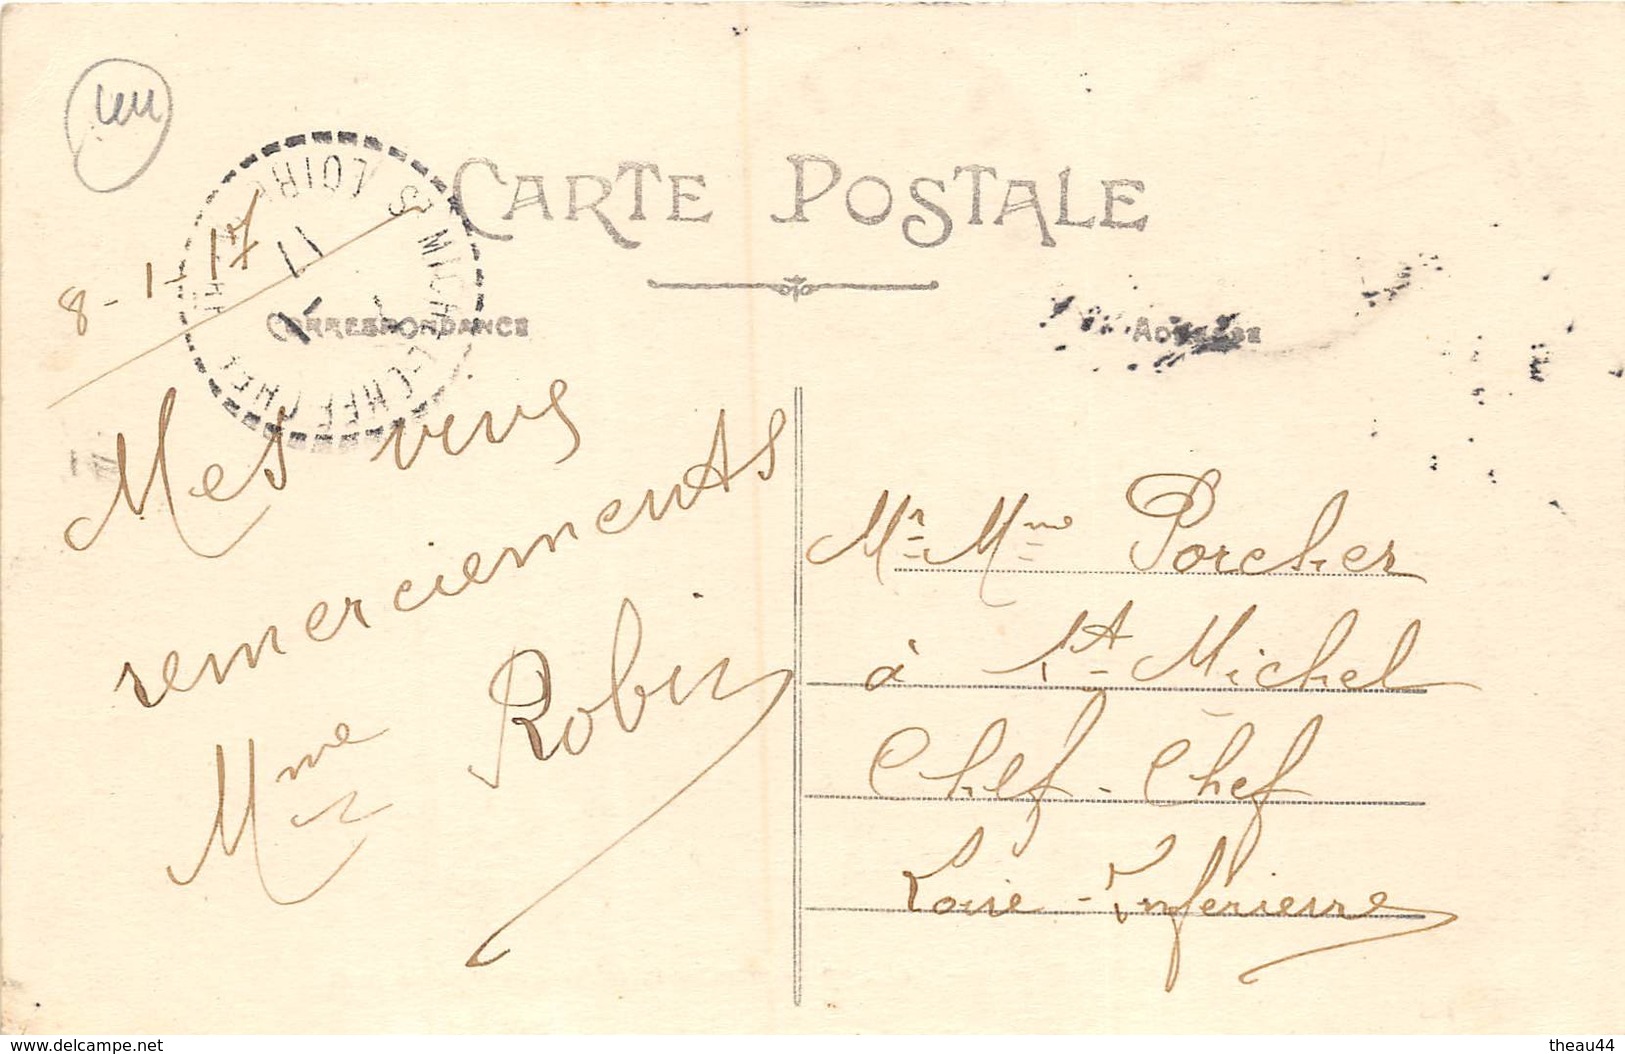 CARTE POSTALE
CORRESPONDANCE
ADRESSE
8-1-17
Mes vives
remerciements
Mme Robin
Mr Mme Porcher
à St-Michel
Chef-Chef
Loire-Inférieure
S MICHEL-CHEF-CHEF
LOIRE
17
www.delcampe.net
theau44